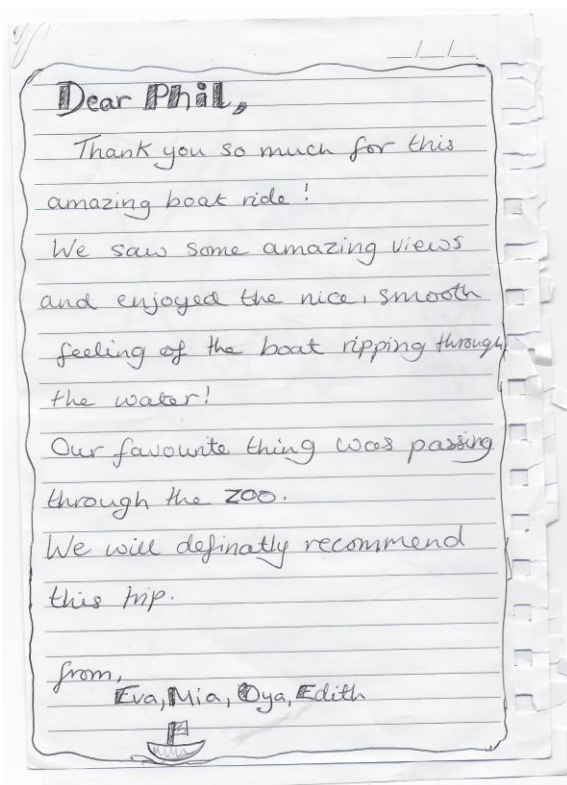 Dear Phil,
Thank you so much for this
amazing boat ride!
We saw some amazing views
and enjoyed the nice, smooth
feeling of the boat ripping through
the water!
Our favourite thing was passing
through the zoo.
We will definatly recommend
this trip.
from,
Eva, Mia, Oya, Edith